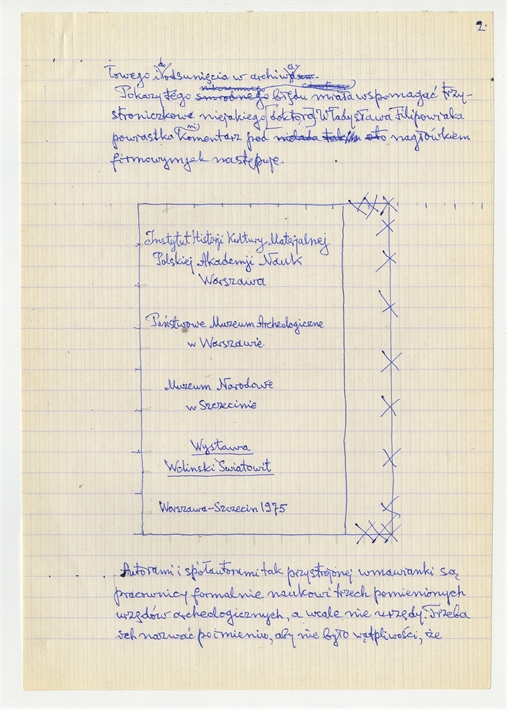 2.
łowego i odsunięcia w archiwa
Pokazy tego błędu miała wspomagać trzy-
stroniczkowa niejakiego [doktora] Władysława Filipowiaka
powiastka. Komentarz pod nagłówkiem
firmowym jak następuje.
Instytut Historji Kultury Materjalnej
Polskiej Akademji Nauk
Warszawa
Państwowe Muzeum Archeologiczne
w Warszawie
Muzeum Narodowe
w Szczecinie
Wystawa
Woliński Światowit
Warszawa-Szczecin 1975
Autorami i społautorami tak przystrojonej wmawianki są
pracownicy formalnie naukowi trzech pomienionych
urzędów archeologicznych, a wcale nie urzędy. Trzeba
ich nazwać po imieniu, aby nie było wątpliwości, że